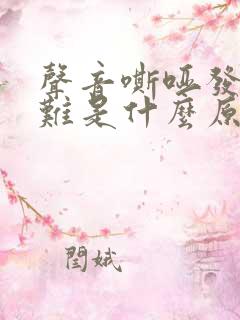 聲音嘶啞發
難是什麼原
閆娥